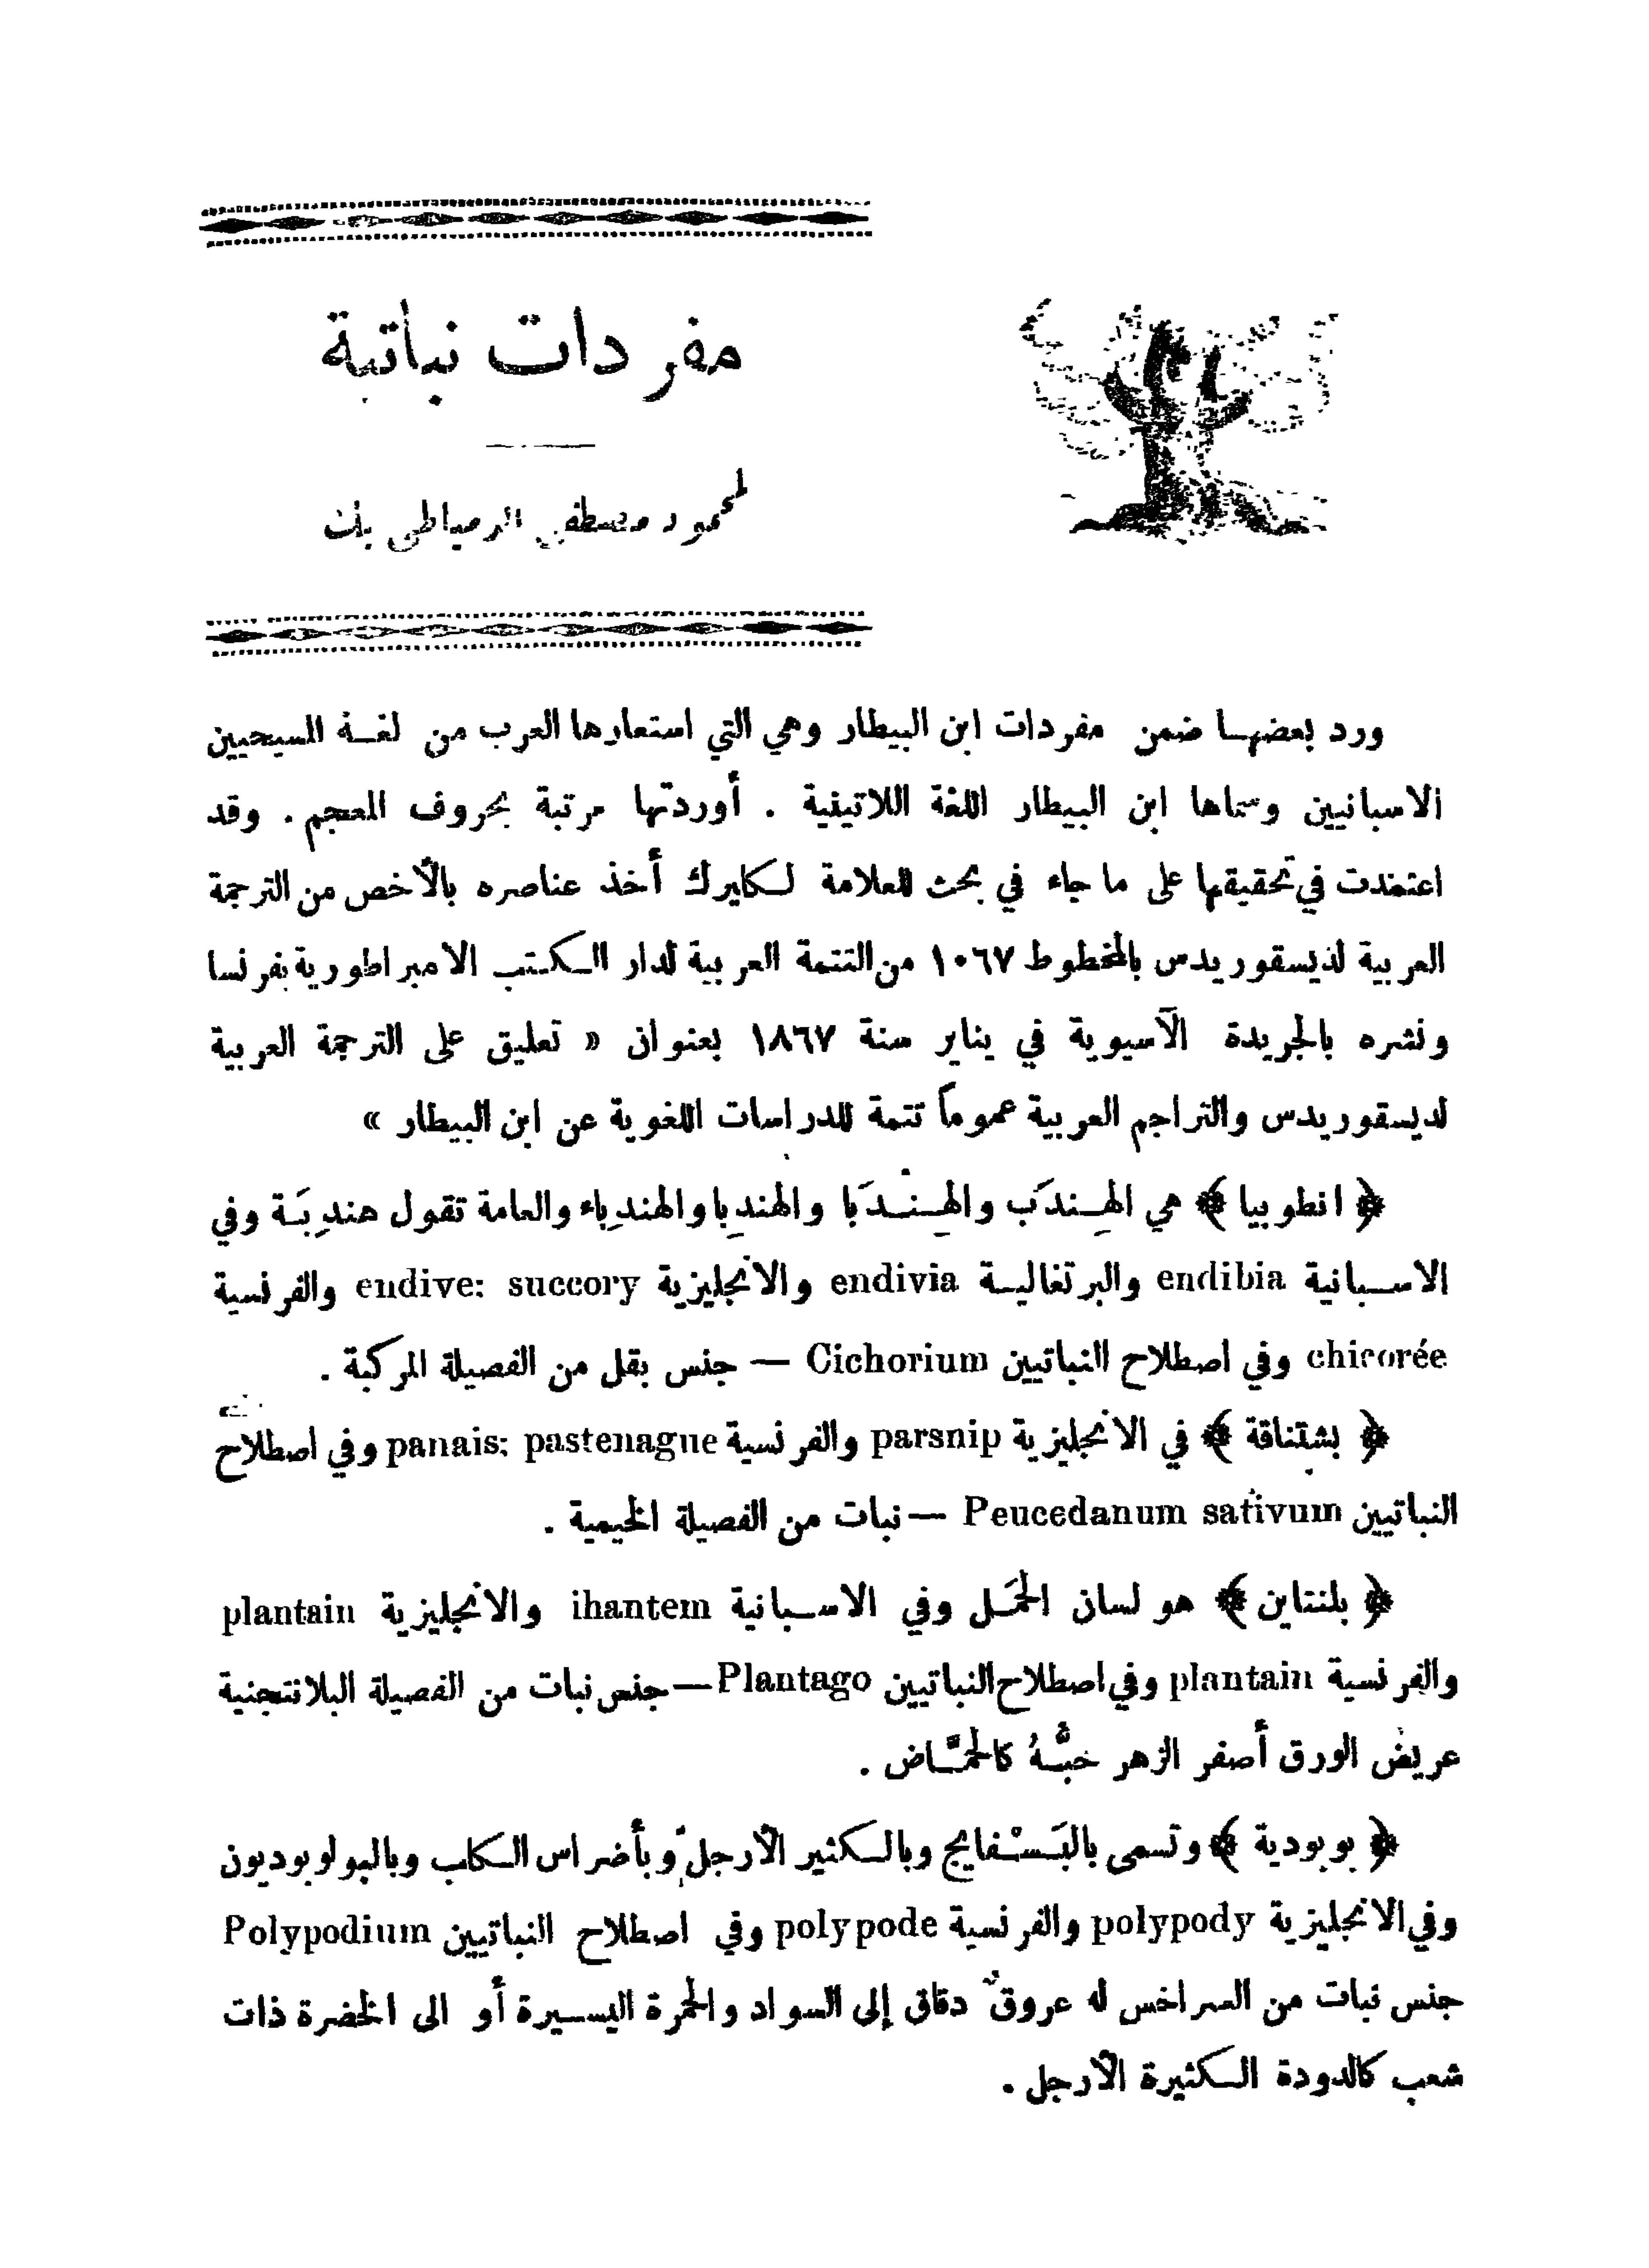 مفردات نباتية
لمحمود مصطفى الدمياطي بك
ورد بعضها ضمن مفردات ابن البيطار وهي التي استعارها العرب من لغة المسيحيين
الاسبانيين وسماها ابن البيطار اللغة اللاتينية . أوردتها مرتبة بحروف المعجم . وقد
اعتمدت في تحقيقها على ما جاء في بحث للعلامة لكليرك أخذ عناصره بالأخص من الترجمة
العربية لديسقوريدس بالمخطوط ١٠٦٧ من التتمة العربية لدار الكتب الامبراطورية بفرنسا
ونشره بالجريدة الآسيوية في يناير سنة ١٨٦٧ بعنوان « تعليق على الترجمة العربية
لديسقوريدس والتراجم العربية عموماً تتمة للدراسات اللغوية عن ابن البيطار »
﴿ انطوبيا ﴾ هي الهِندَب والهِنْدَبا والهندِبا والهندِباء والعامة تقول هندِبَة وفي
الاسبانية endibia والبرتغالية endivia والانجليزية endive: succory والفرنسية
chicorée وفي اصطلاح النباتيين Cichorium — جنس بقل من الفصيلة المركبة .
﴿ بشتناقة ﴾ في الانجليزية parsnip والفرنسية panais: pastenague وفي اصطلاح
النباتيين Peucedanum sativum — نبات من الفصيلة الخيمية .
﴿ بلنتاين ﴾ هو لسان الحَمَل وفي الاسبانية ihantem والانجليزية plantain
والفرنسية plantain وفي اصطلاح النباتيين Plantago — جنس نبات من الفصيلة البلانتجنية
عريض الورق أصفر الزهر حبُّهُ كالحمَّاض .
﴿ بوبودية ﴾ وتسمى بالبَسْفايج وبالكثير الأرجل وبأضراس الكلب وبالبولوبوديون
وفي الانجليزية polypody والفرنسية polypode وفي اصطلاح النباتيين Polypodium
جنس نبات من السراخس له عروقٌ دقاق إلى السواد والحمرة اليسيرة أو الى الخضرة ذات
شعب كالدودة الكثيرة الأرجل .